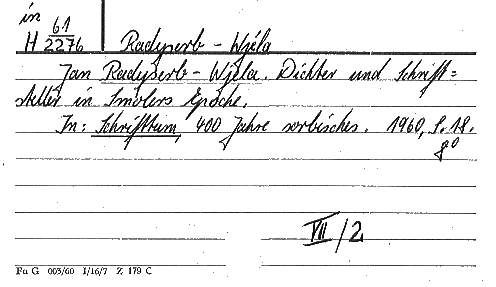 in
61
H 2276 Radyserb - Wjela
Jan Radyserb - Wjela. Dichter und Schrift=
steller in Smolers Epoche.
In: Schrifttum, 400 Jahre sorbisches. 1960, S. 18.
8°
VII/2
Fu G 003/60 I/16/7 Z. 179 C